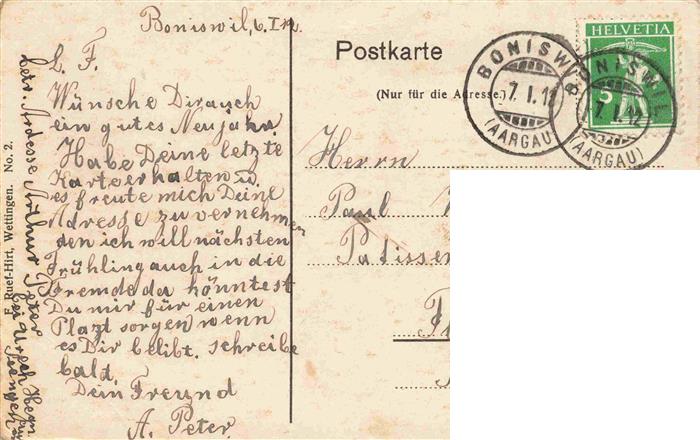 Boniswil, 6. I 12.
L. F.
Wünsche Dir auch
ein gutes Neujahr.
Habe Deine letzte
Karte erhalten u.
es freute mich Deine
Adresse zu vernehmen
den ich will nächsten
Frühling auch in die
Fremde da könntest
Du mir für einen
Platzt sorgen wenn
es Dir belibt. schreibe
bald.
Dein Freund
A. Peter.
Adresse Arthur Peter
bei
E. Ruef-Hirt, Wettingen. No. 2.
Postkarte
(Nur für die Adresse.)
HELVETIA
5
BONISWIL
7. I. 12
(AARGAU)
BONISWIL
7. I. 12
(AARGAU)
Herrn
Paul
Patissen